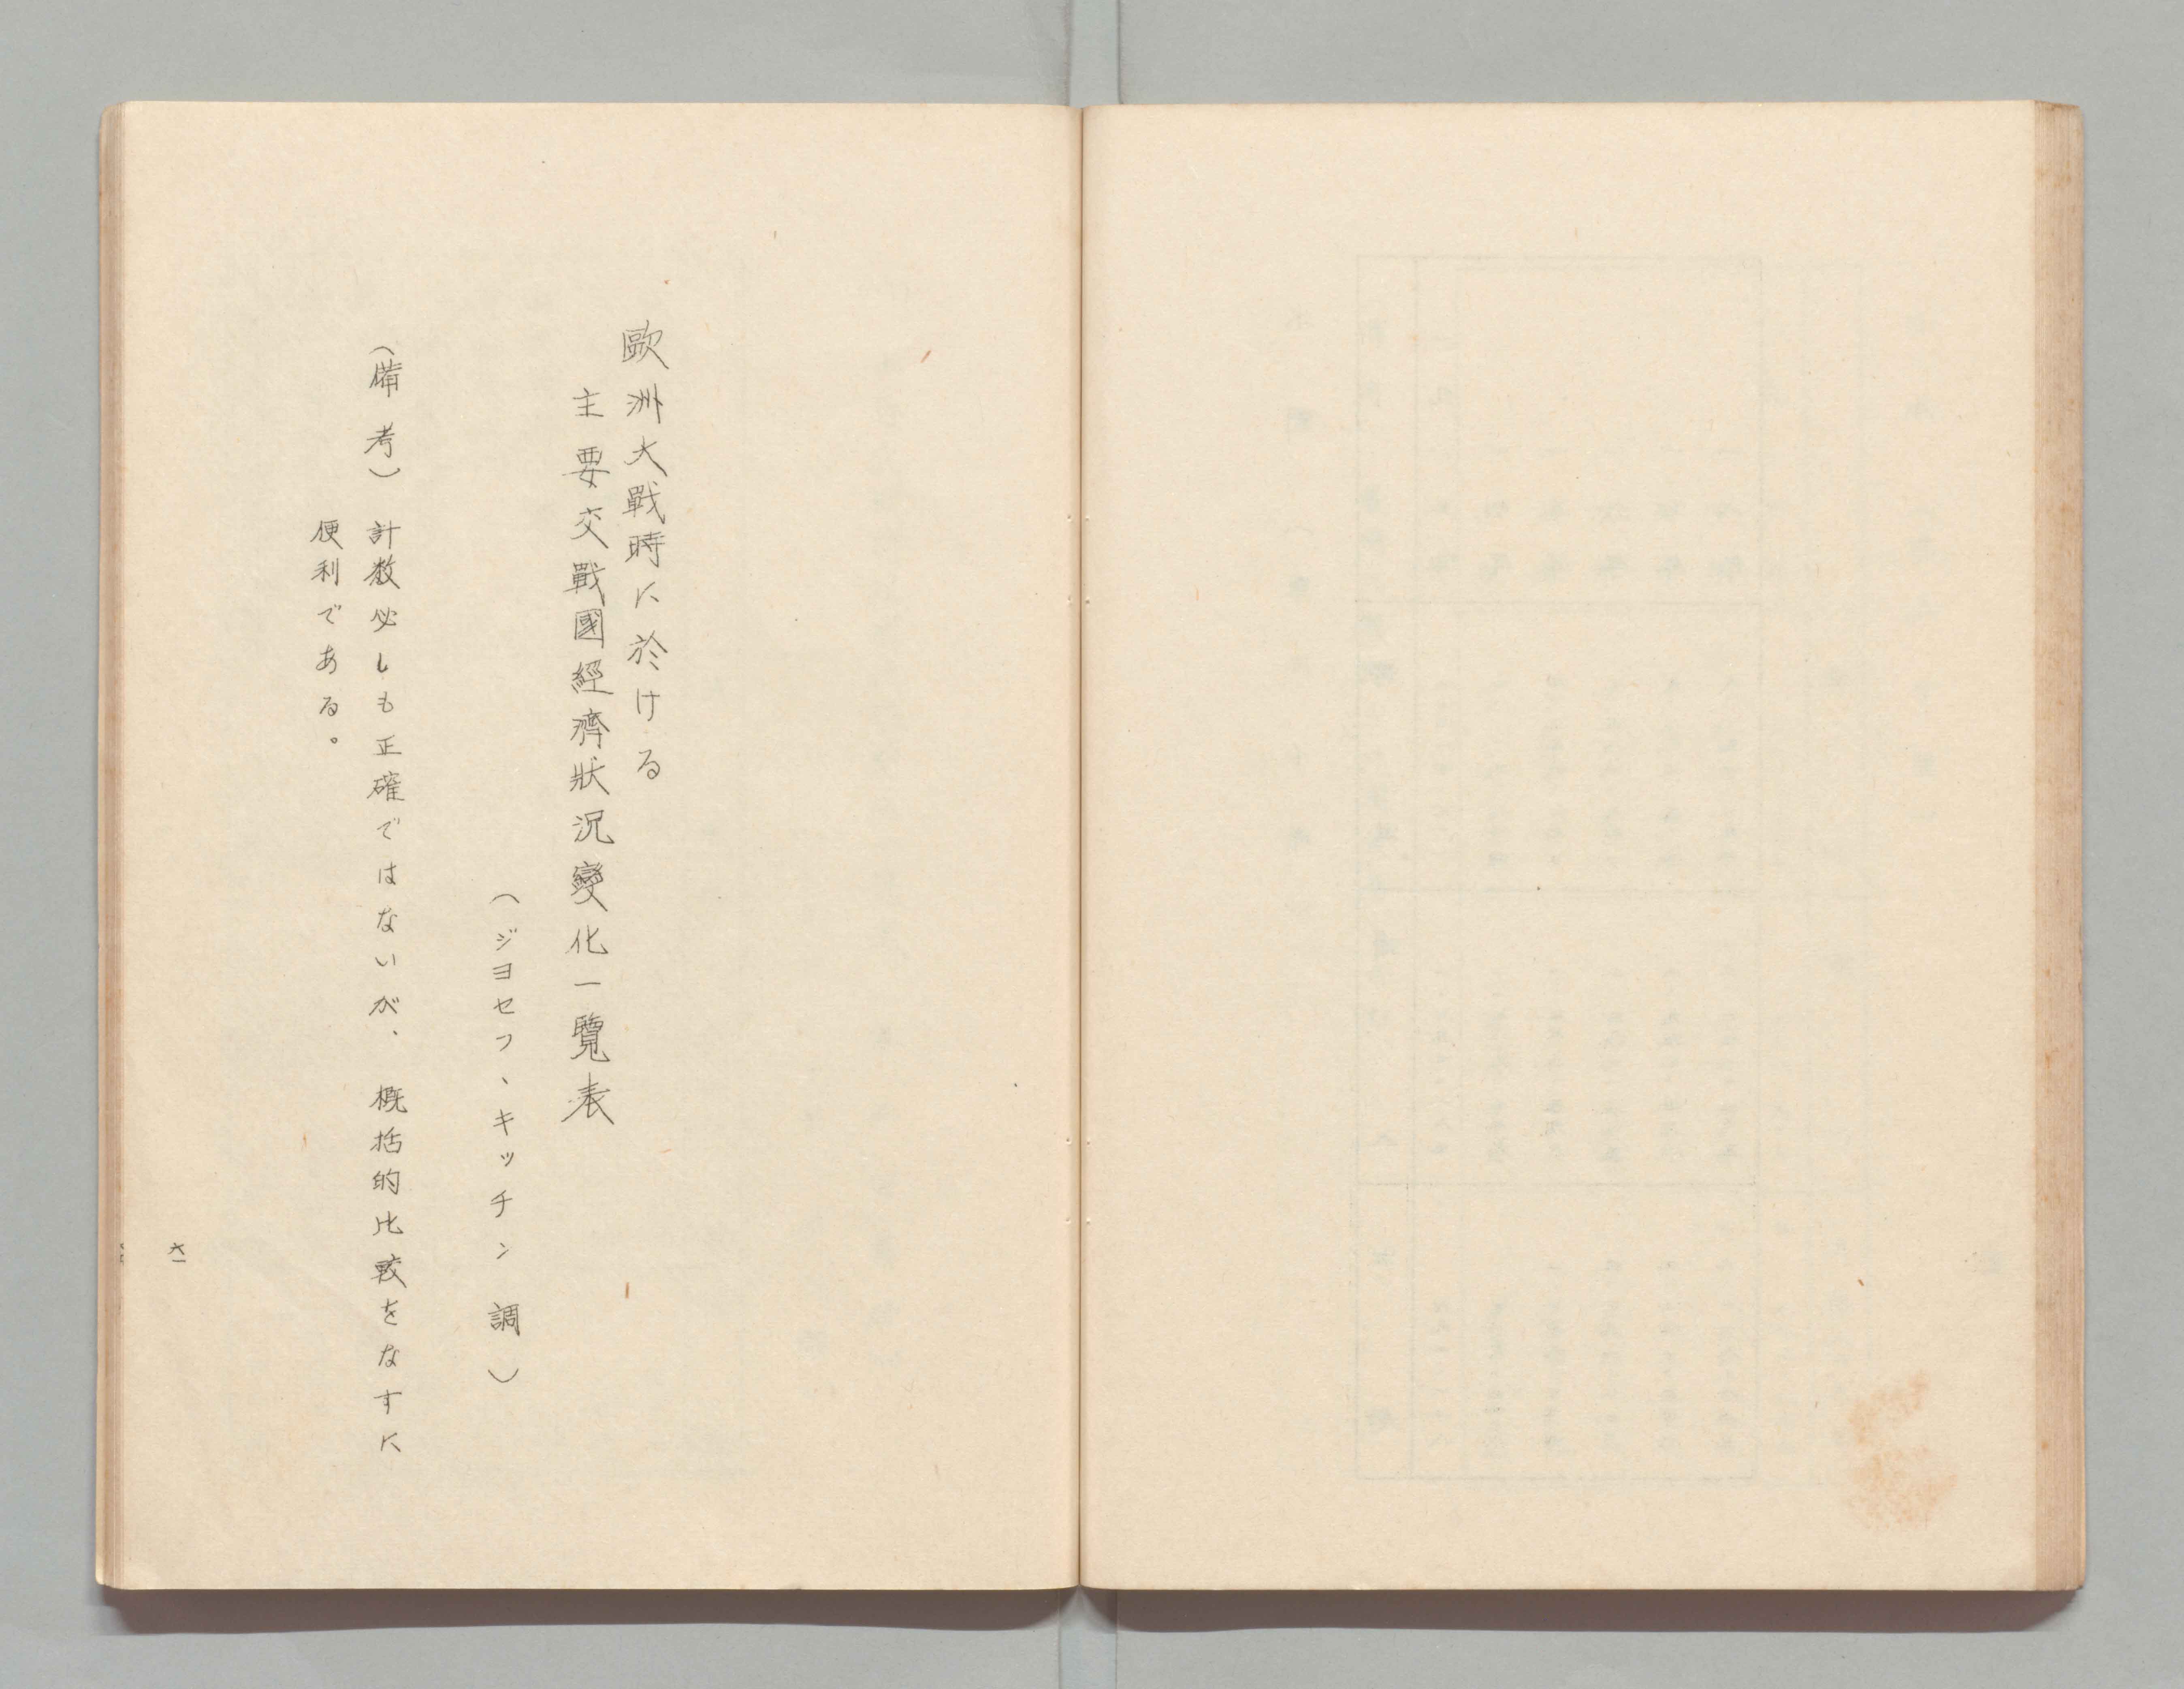 歐洲大戰時に於ける
主要交戰國經濟狀況變化一覽表
（ジヨセフ、キッチン 調）
（備考） 計数必しも正確ではないが、概括的比較をなすに
便利である。
六一